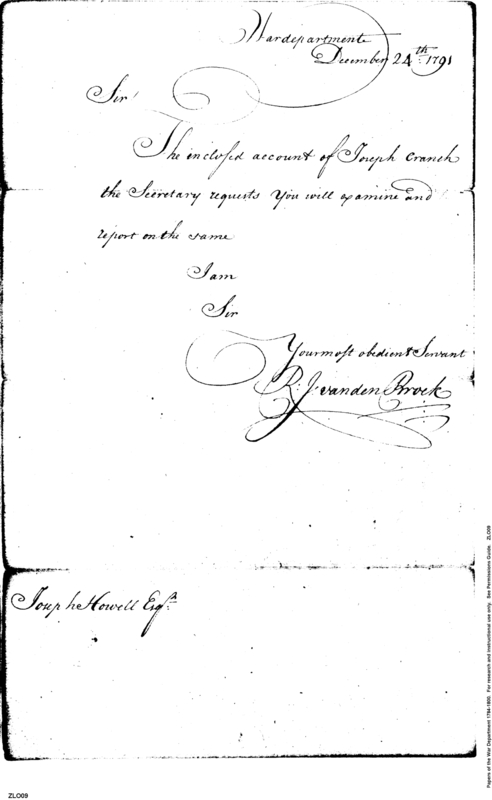 Wardepartment
December 24th 1791
Sir
The inclosed account of Joseph Cranch
the Secretary requests You will examine and
report on the same
I am
Sir
Your most obedient Servant
R: J: vanden Broek
Joseph Howell Esqr
Papers of the War Department 1784-1800. For research and instructional use only. See Permissions Guide. ZLO09
ZLO09